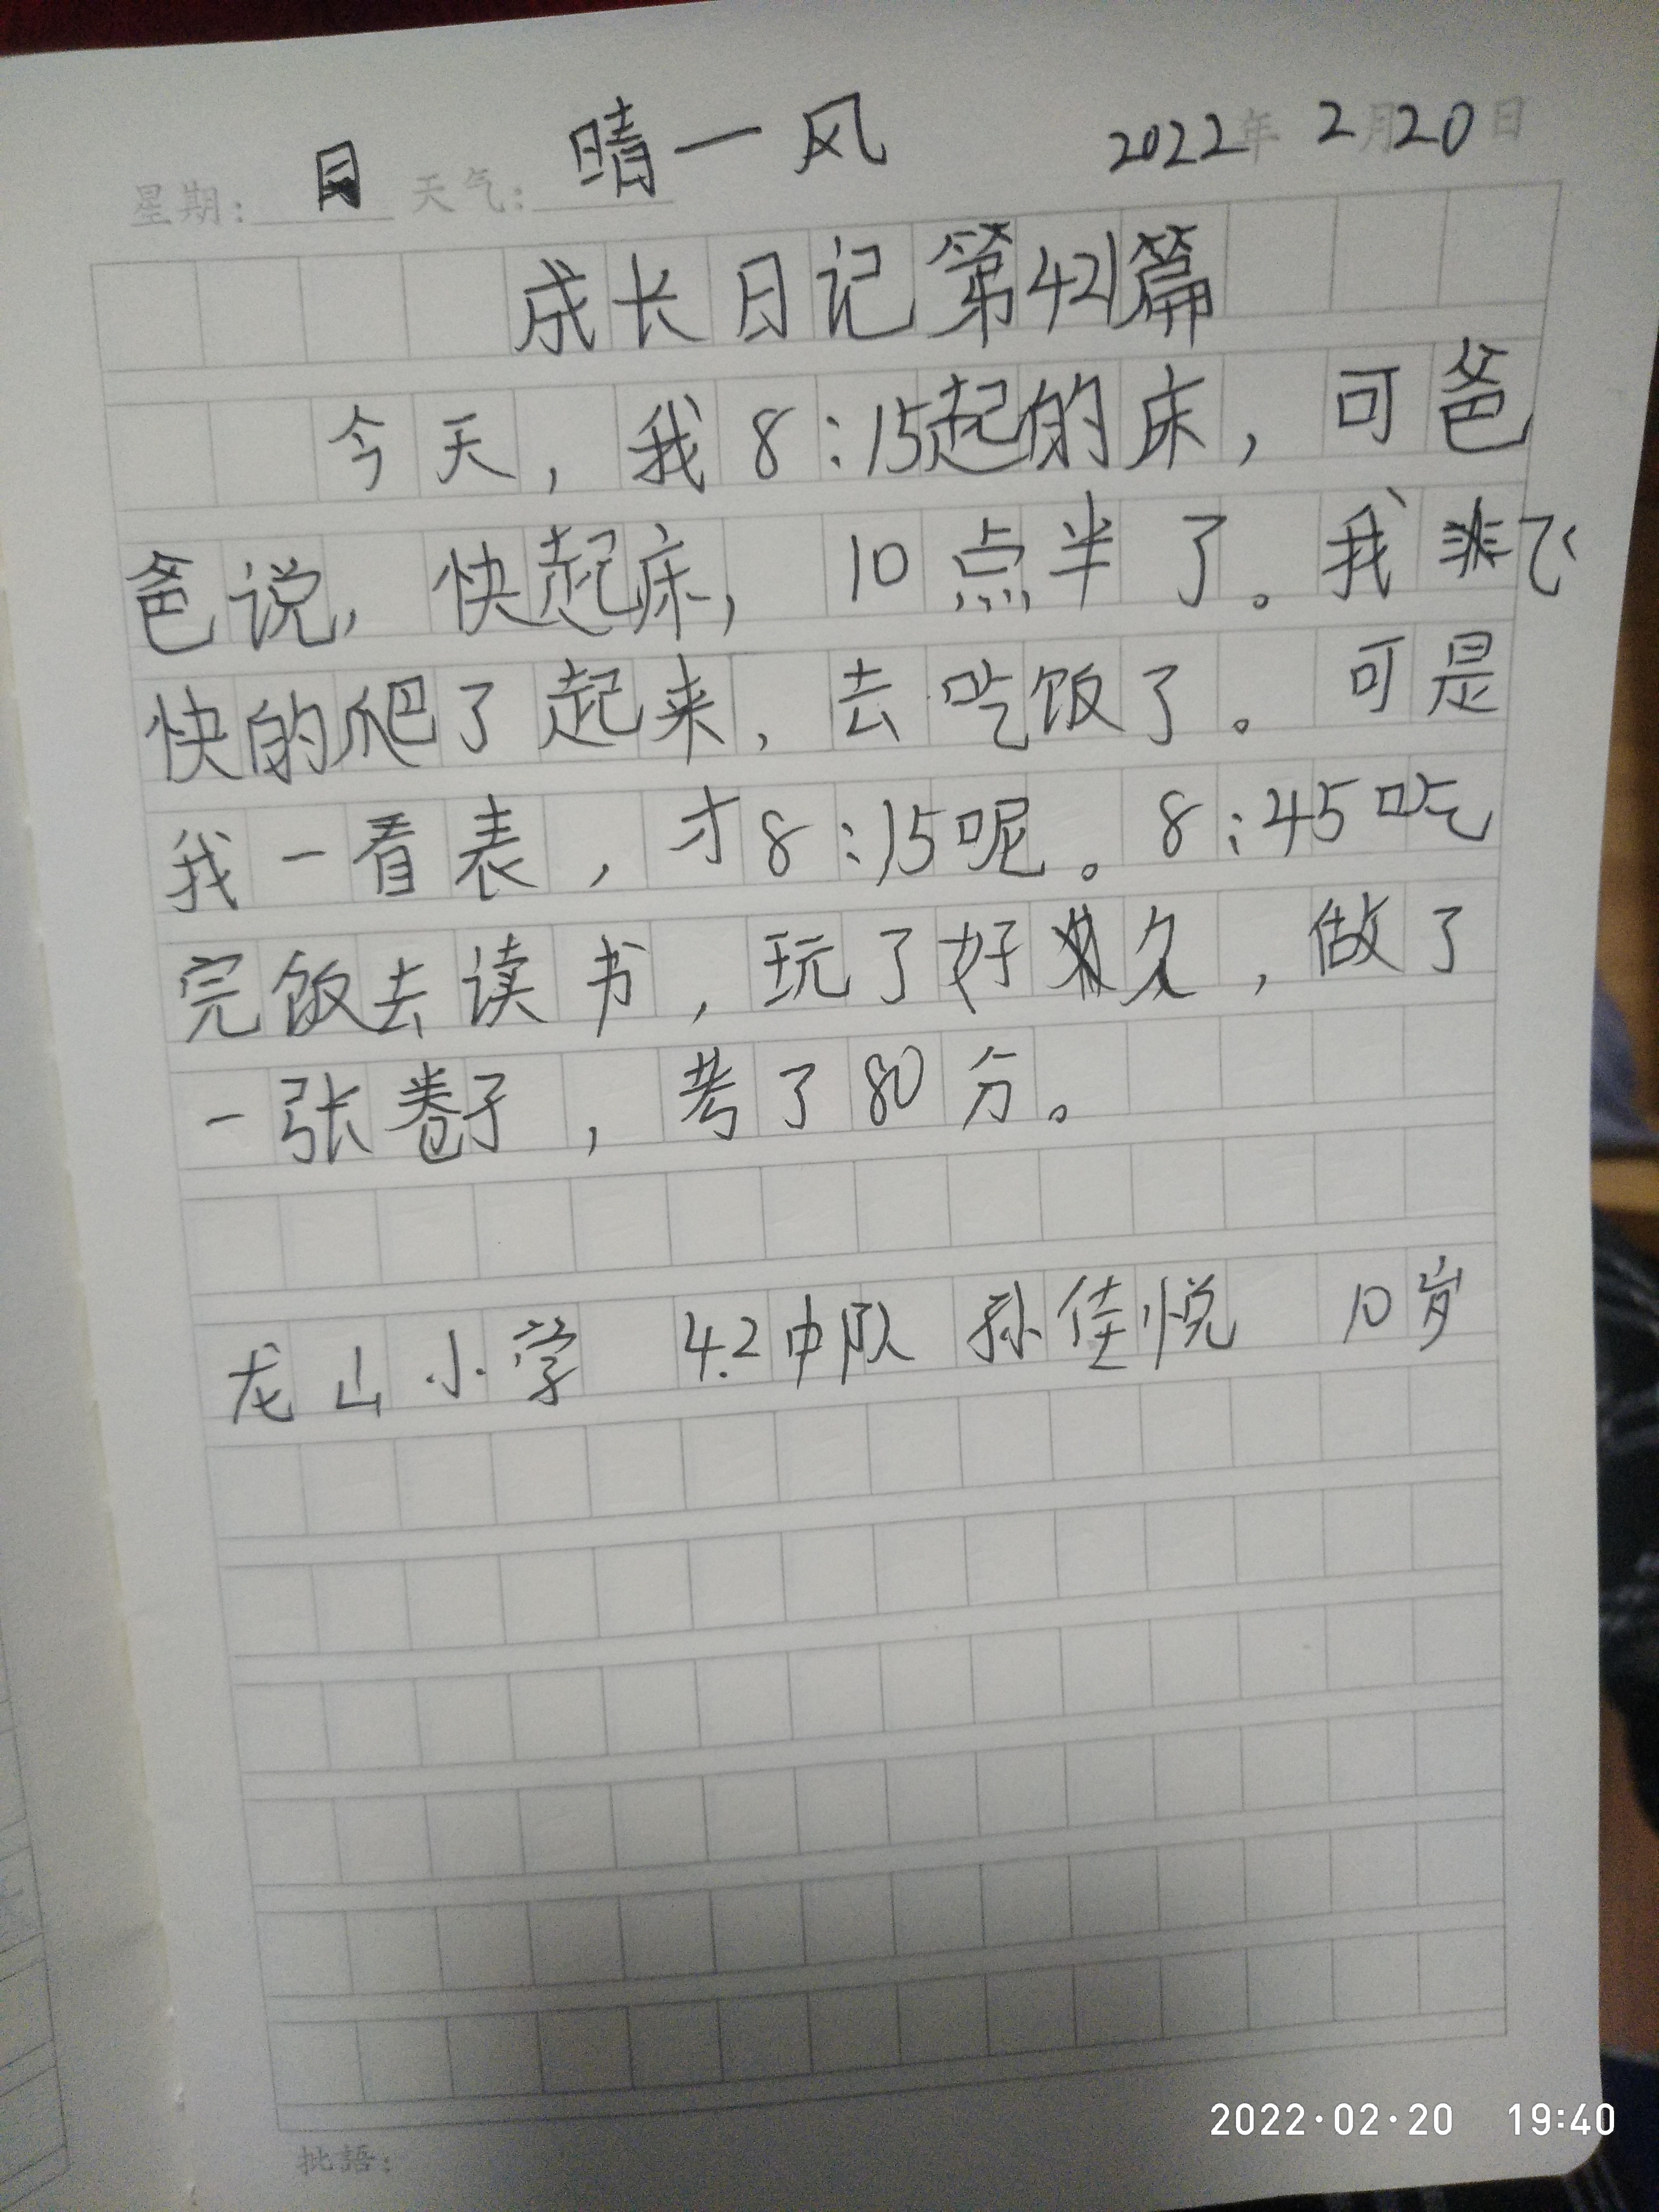 星期：日 天气：晴一风 2022年2月20日
成长日记第421篇
今天，我8:15起的床，可爸
爸说，快起床，10点半了。我飞
快的爬了起来，去吃饭了。可是
我一看表，才8:15呢。8:45吃
完饭去读书，玩了好久，做了
一张卷子，考了80分。
龙山小学 4.2中队 孙佳悦 10岁
批語：
2022·02·20 19:40